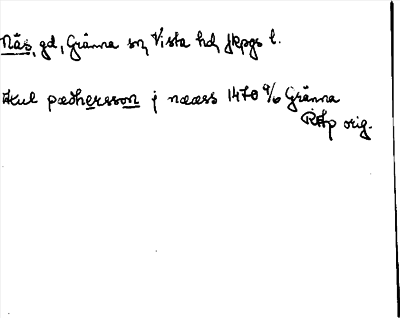 Näs, gd, Gränna sn, Vista hd, Jkpgs l.
skul pædhersson j nææss 1470 9/6 Gränna
RAp orig.